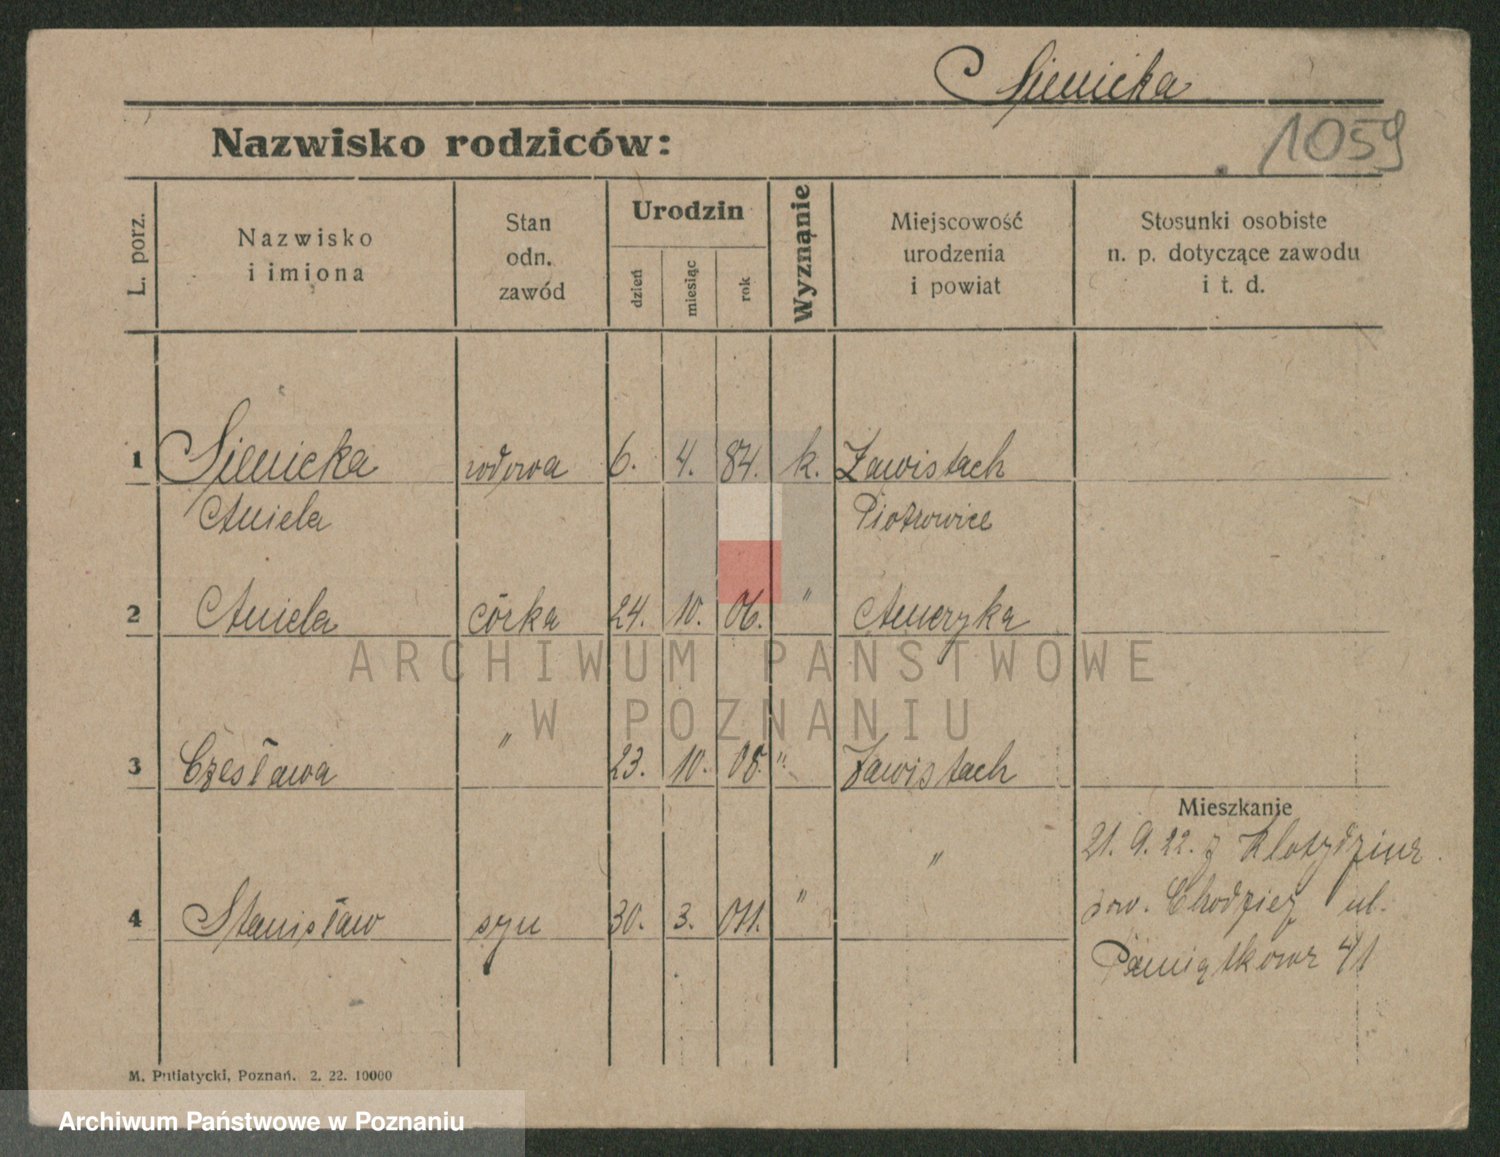 Sienicka
Nazwisko rodziców:
1059
L. porz.
Nazwisko
i imiona
Stan
odn.
zawód
Urodzin
dzień
miesiąc
rok
Wyznanie
Miejscowość
urodzenia
i powiat
Stosunki osobiste
n. p. dotyczące zawodu
i t. d.
1 Sienicka wdowa 6. 4. 84. k. Zawistach
Aniela Piotrowice
2 Aniela córka 24. 10. 06. " Ameryka
3 Czesława " 23. 10. 08. " Zawistach
Mieszkanie
21. 9. 22. z
pow. Chodzież ul.
4 Stanisław syn 30. 3. 011. " "
Pamiątkowa 41
M. Putiatycki, Poznań. 2. 22. 10000
ARCHIWUM PAŃSTWOWE
W POZNANIU
Archiwum Państwowe w Poznaniu